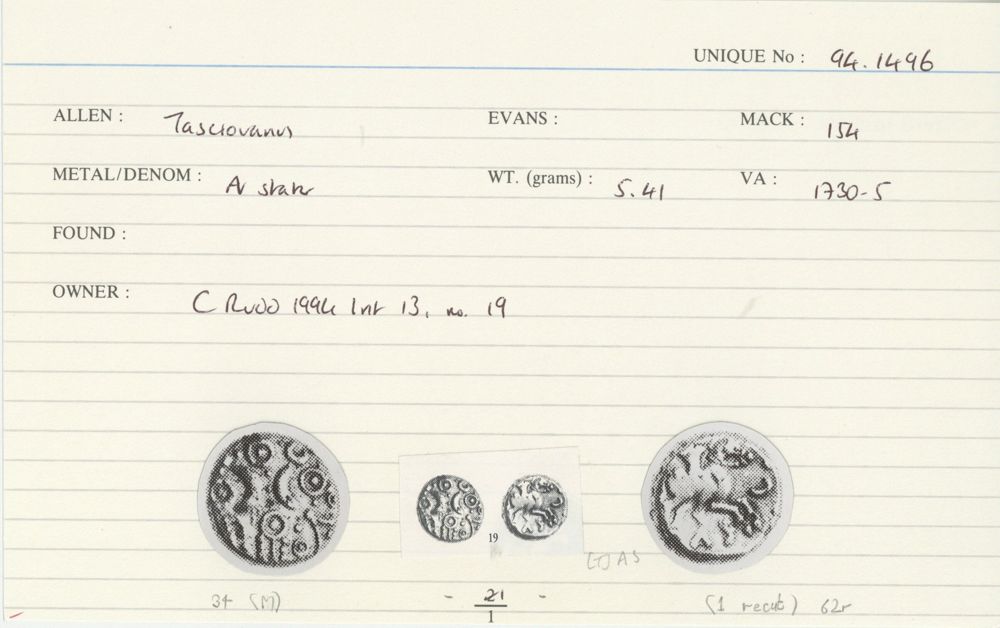 UNIQUE No : 94.1496
ALLEN : Tasciovanus EVANS : MACK : 154
METAL/DENOM : AV stater WT. (grams) : 5.41 VA : 1730-5
FOUND :
OWNER : C Rudd 1994 list 13, no. 19
19
[T]AS
34 (M) - 21 - (1 recut) 62r
1